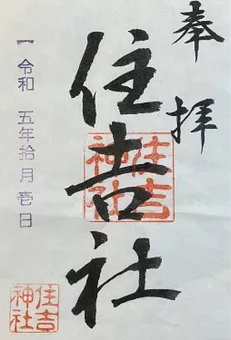 奉拝
住吉社
住吉
神社
一 令和 五年拾月壱日
住吉
神社